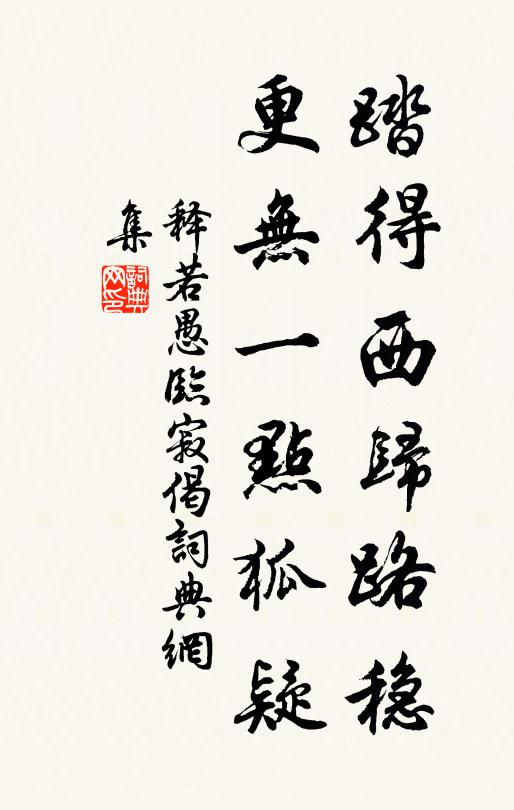 踏得西歸路稳
更無一點狐疑
释若愚臨寂偈詞典網
集
詞典网印